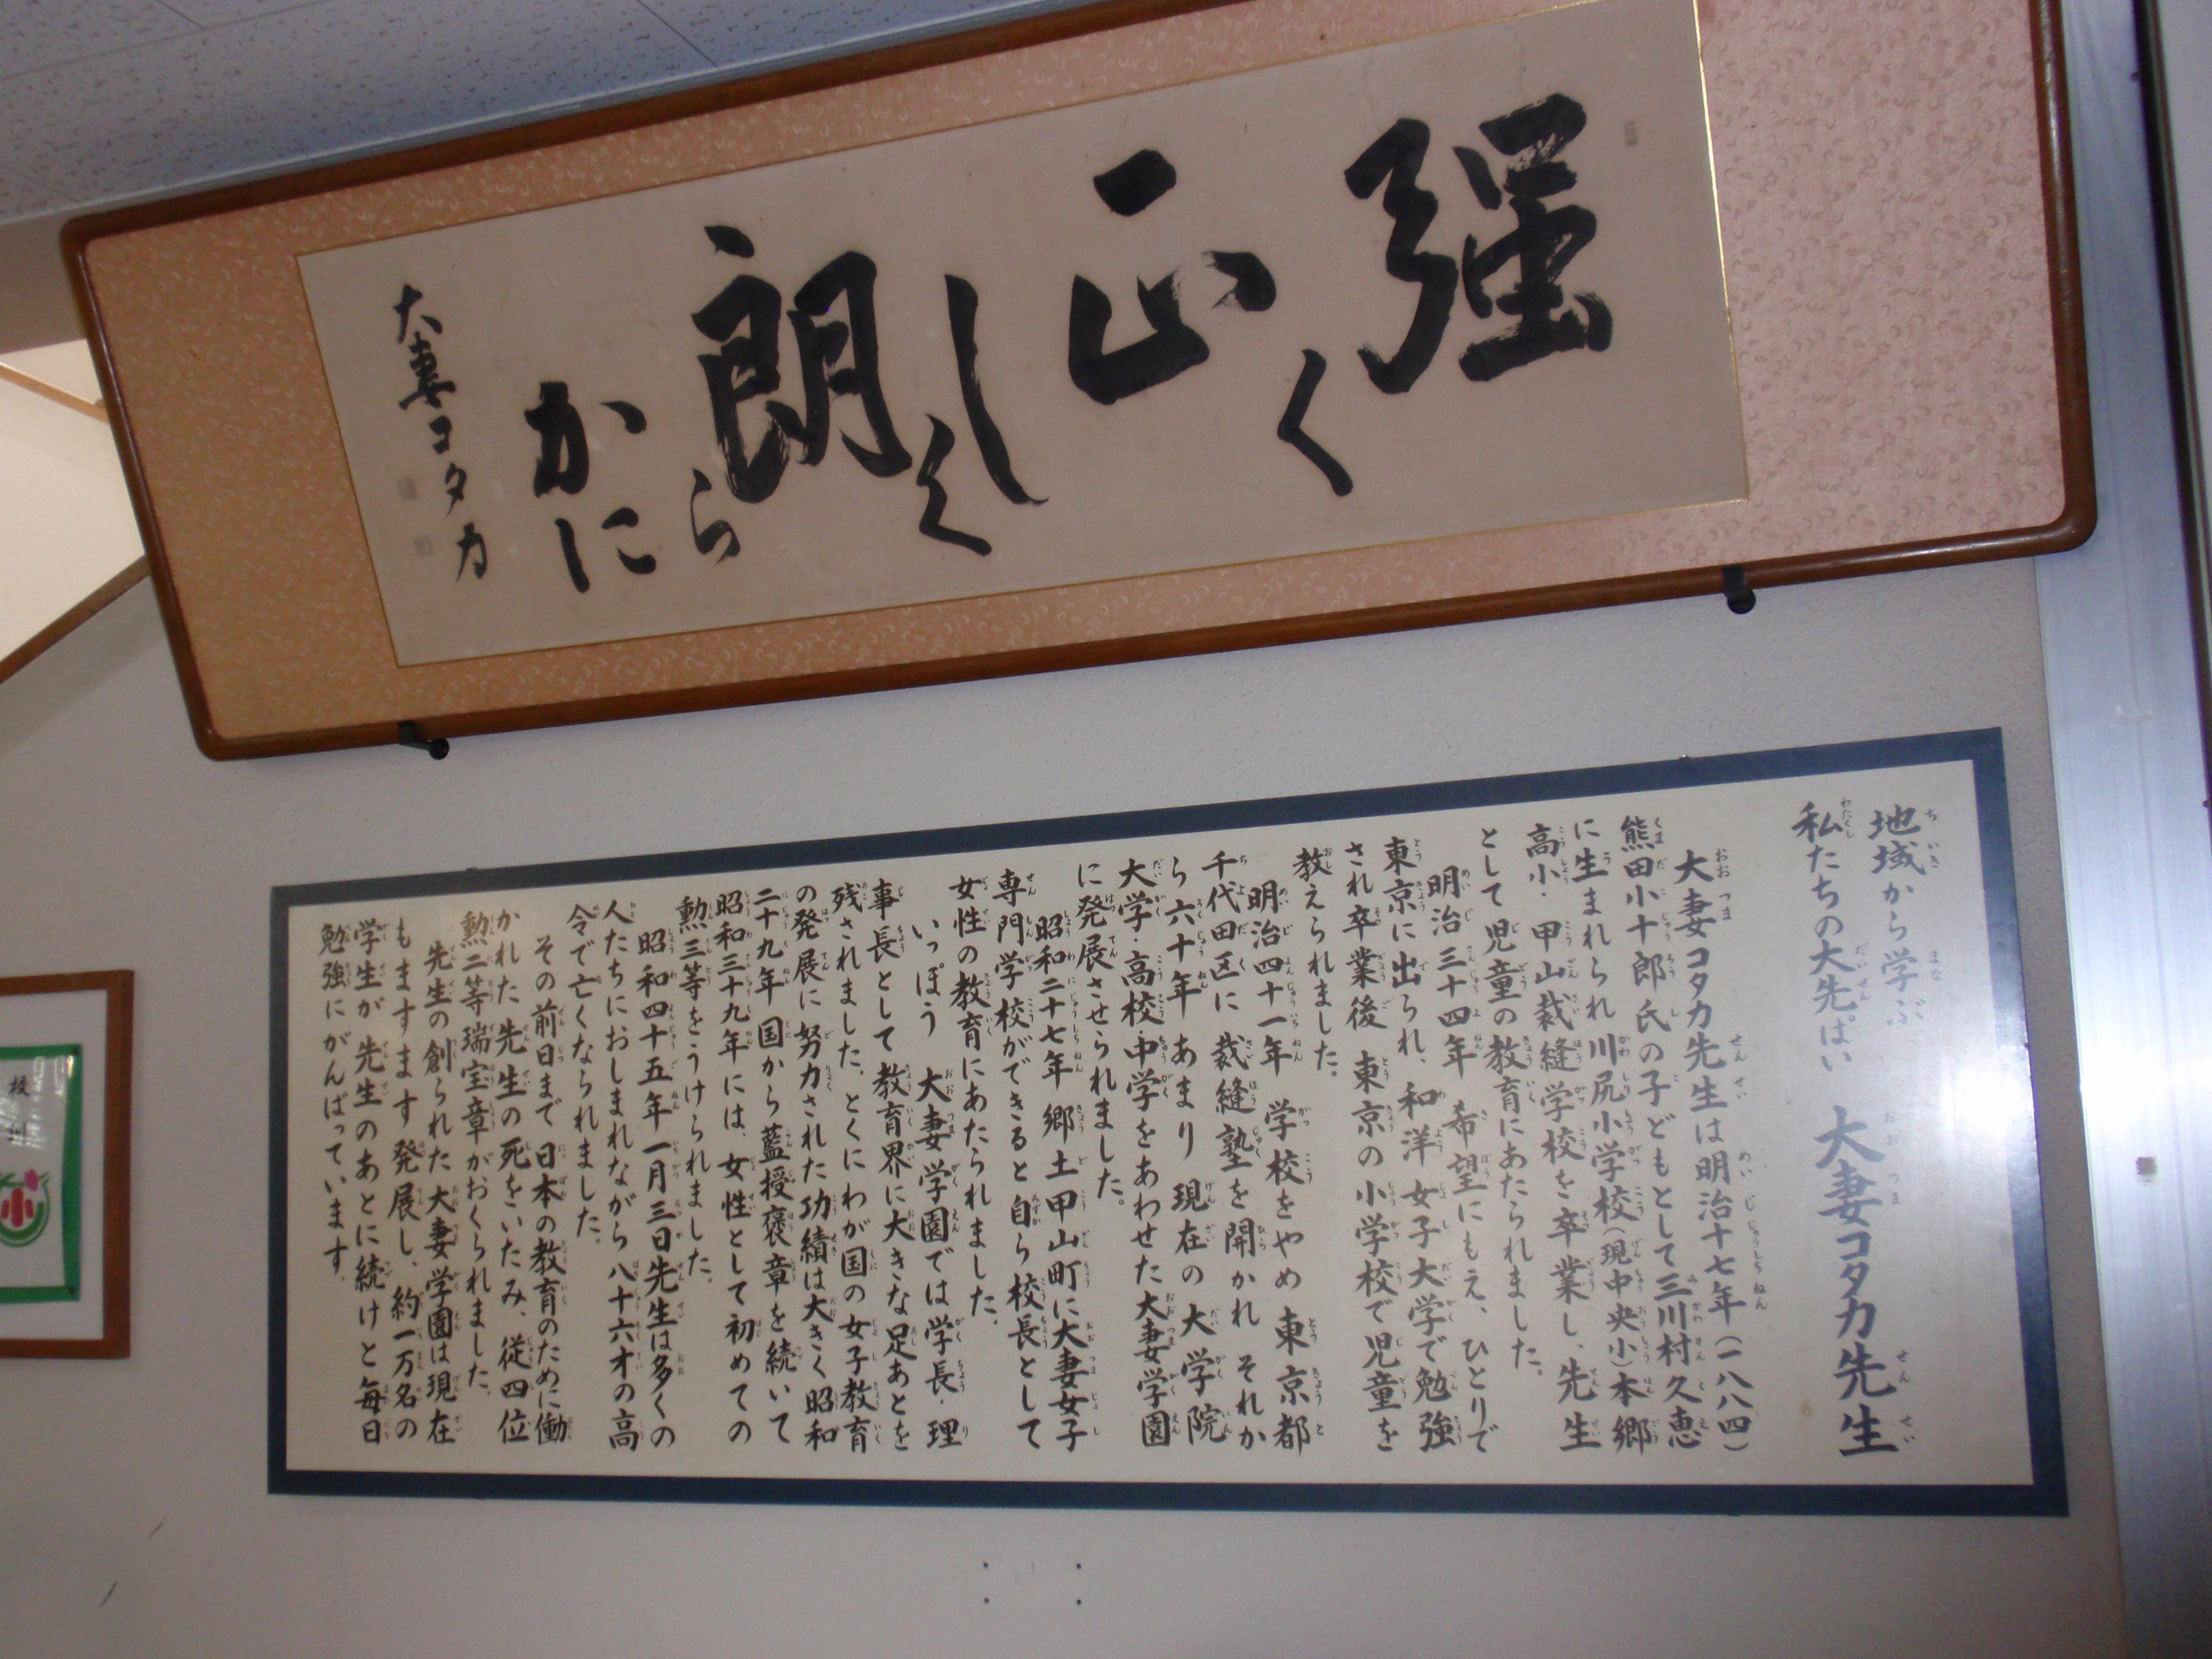 強く
正しく
朗らかに
大妻コタカ
地域から学ぶ
私たちの大先ぱい 大妻コタカ先生
大妻コタカ先生は明治十七年(一八八四)
熊田小十郎氏の子どもとして三川村久恵
に生まれられ川尻小学校(現中央小)本郷
高小・甲山裁縫学校を卒業し、先生
として児童の教育にあたられました。
明治三十四年 希望にもえ、ひとりで
東京に出られ、和洋女子大学で勉強
され卒業後 東京の小学校で児童を
教えられました。
明治四十一年 学校をやめ 東京都
千代田区に 裁縫塾を開かれ それか
ら六十年 あまり 現在の大学院
大学・高校・中学をあわせた大妻学園
に発展させられました。
昭和二十七年 郷土甲山町に大妻女子
専門学校ができると自ら校長として
女性の教育にあたられました。
いっぽう 大妻学園では学長・理
事長として 教育界に大きな足あとを
残されました。とくにわが国の女子教育
の発展に努力された功績は大きく昭和
二十九年 国から藍授褒章を続いて
昭和三十九年には、女性として初めての
勲三等をうけられました。
昭和四十五年一月三日先生は多くの
人たちにおしまれながら八十六才の高
令で亡くなられました。
その前日まで日本の教育のために働
かれた先生の死をいたみ、従四位
勲二等瑞宝章がおくられました。
先生の創られた大妻学園は現在
もますます発展し、約一万名の
学生が 先生のあとに続けと毎日
勉強にがんばっています。
校